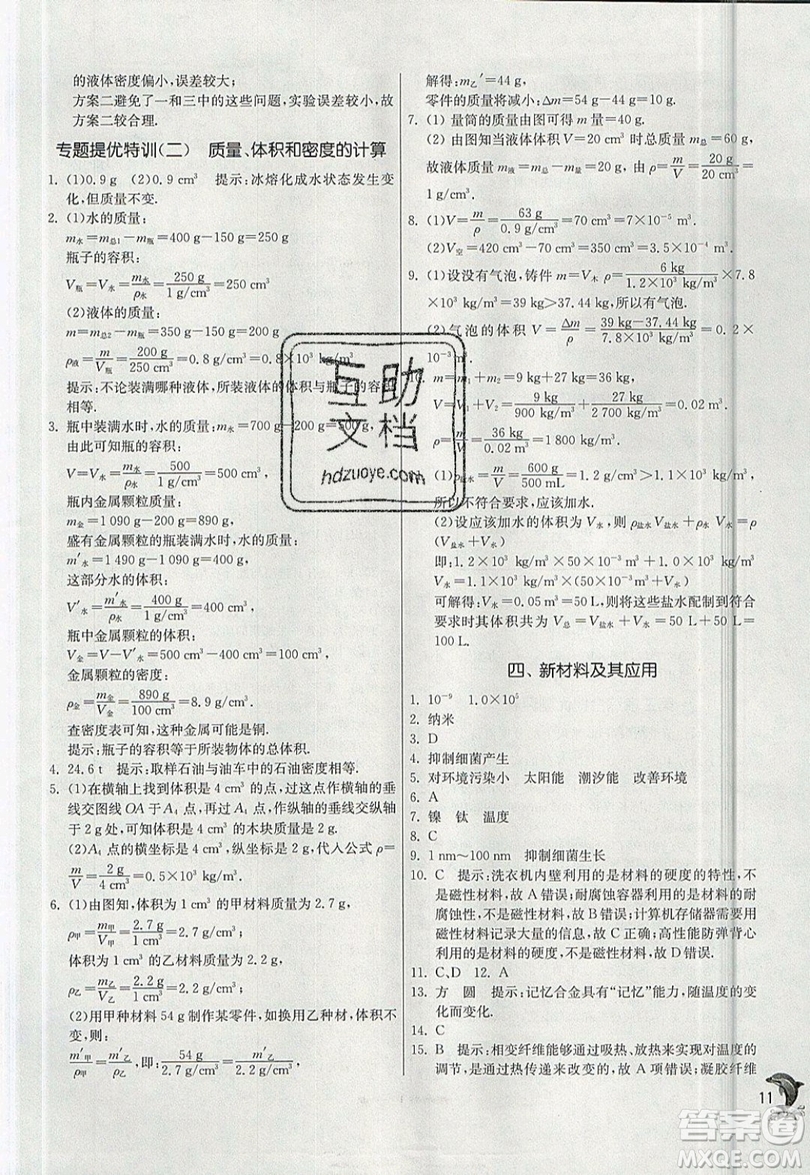 的液体密度偏小，误差较大；
方案二避免了一和三中的这些问题，实验误差较小，故
方案二较合理.
专题提优特训(二) 质量、体积和密度的计算
1. (1)0.9 g (2)0.9 cm³ 提示：冰熔化成水状态发生变
化，但质量不变.
2. (1)水的质量：
m水＝m总1－m瓶＝400 g－150 g＝250 g
瓶子的容积：
V瓶＝V水＝m水/ρ水＝250 g/1 g/cm³＝250 cm³
(2)液体的质量：
m＝m总2－m瓶＝350 g－150 g＝200 g
ρ液＝m/V瓶＝200 g/250 cm³＝0.8 g/cm³＝0.8×10³ kg/m³
提示：不论装满哪种液体，所装液体的体积与瓶子的容积
相等.
3. 瓶中装满水时，水的质量：m水＝700 g－200 g＝500 g
由此可知瓶的容积：
V＝V水＝m水/ρ水＝500/1 g/cm³＝500 cm³
瓶内金属颗粒质量：
m金＝1 090 g－200 g＝890 g，
盛有金属颗粒的瓶装满水时，水的质量：
m′水＝1 490 g－1 090 g＝400 g，
这部分水的体积：
V′水＝m′水/ρ水＝400 g/1 g/cm³＝400 cm³，
瓶中金属颗粒的体积：
V金＝V水－V′水＝500 cm³－400 cm³＝100 cm³，
金属颗粒的密度：
ρ金＝m金/V金＝890 g/100 cm³＝8.9 g/cm³，
查密度表可知，这种金属可能是铜.
提示：瓶子的容积等于所装物体的总体积.
4. 24.6 t 提示：取样石油与油车中的石油密度相等.
5. (1)在横轴上找到体积是 4 cm³ 的点，过这点作横轴的垂
线交图线 OA 于 A₄ 点，再过 A₄ 点，作纵轴的垂线交纵轴
于 2 g 处，可知体积是 4 cm³ 的木块质量是 2 g.
(2)A₄ 点的横坐标是 4 cm³，纵坐标是 2 g，代人公式 ρ＝
m/V＝2 g/4 cm³＝0.5×10³ kg/m³.
6. (1)由图知，体积为 1 cm³ 的甲材料质量为 2.7 g，
ρ甲＝m甲/V甲＝2.7 g/1 cm³＝2.7 g/cm³
体积为 1 cm³ 的乙材料质量为 2.2 g，
ρ乙＝m乙/V乙＝2.2 g/1 cm³＝2.2 g/cm³.
(2)用甲种材料 54 g 制作某零件，如换用乙种材，体积不
变，则：
m′甲/ρ甲＝m′乙/ρ乙，即：54 g/2.7 g/cm³＝m′乙/2.2 g/cm³
解得：m乙′＝44 g，
零件的质量将减小：Δm＝54 g－44 g＝10 g.
7. (1) 量筒的质量由图可得 m＝40 g.
(2) 由图知当液体体积 V＝20 cm³ 时总质量 m总＝
60 g，故液体质量 m液＝20 g，故液体密度 ρ＝m/V＝20 g/20 cm³
＝1 g/cm³.
8. (1)V＝m/ρ＝63 g/0.9 g/cm³＝70 cm³＝7×10⁻⁵ m³.
(2)V空＝420 cm³－70 cm³＝350 cm³＝3.5×10⁻⁴ m³.
9. (1)设没有气泡，铸件 m＝V木 ρ＝6 kg/1.2×10³ kg/m³×7.8
×10³ kg/m³＝39 kg＞37.44 kg，所以有气泡.
(2) 气泡的体积 V＝Δm/ρ＝39 kg－37.44 kg/7.8×10³ kg/m³＝0.2×
10⁻³ m³.
10. m＝m₁＋m₂＝9 kg＋27 kg＝36 kg
V＝V₁＋V₂＝9 kg/900 kg/m³＋27 kg/2 700 kg/m³＝0.02 m³
ρ＝m/V＝36 kg/0.02 m³＝1 800 kg/m³.
(1)ρ＝m/V＝600 g/500 mL＝1.2 g/cm³＞1.1×10³ kg/m³，
所以不符合要求，应该加水.
(2)设应该加水的体积为 V水，则 ρ盐水V盐水＋ρ水 V水＝ρ
(V盐水＋V水)
即：1.2×10³ kg/m³×50×10⁻³ m³＋1.0×10³ kg/m³×
V水＝1.1×10³ kg/m³×(50×10⁻³ m³＋V水)
可解得：V水＝0.05 m³＝50 L，则将这些盐水配制到符合
要求时其体积共为 V总＝V盐水＋V水＝50 L＋50 L＝
100 L.
四、新材料及其应用
1. 10⁻⁹ 1.0×10⁵
2. 纳米
3. D
4. 抑制细菌产生
5. 对环境污染小 太阳能 潮汐能 改善环境
6. A
7. 镍 钛 温度
8. C
9. 1 nm～100 nm 抑制细菌生长
10. C 提示：洗衣机内壁利用的是材料的硬度的特性，不
是磁性材料，故 A 错误；耐腐蚀容器利用的是材料的耐
腐蚀性，不是磁性材料，故 B 错误；计算机存储器需要用
磁性材料记录大量的信息，故 C 正确；高性能防弹背心
利用的是材料的硬度，不是磁性材料，故 D 错误.
11. C、D 12. A
13. 方 圆 提示：记忆合金具有“记忆”能力，随温度的变
化而变化.
14. C
15. B 提示：相变纤维能够通过吸热、放热来实现对温度
的调节，是通过热传递来改变内能的；凝胶纤维
11
互助
文档
hdzuoye.com
答案圈
MXQE.COM